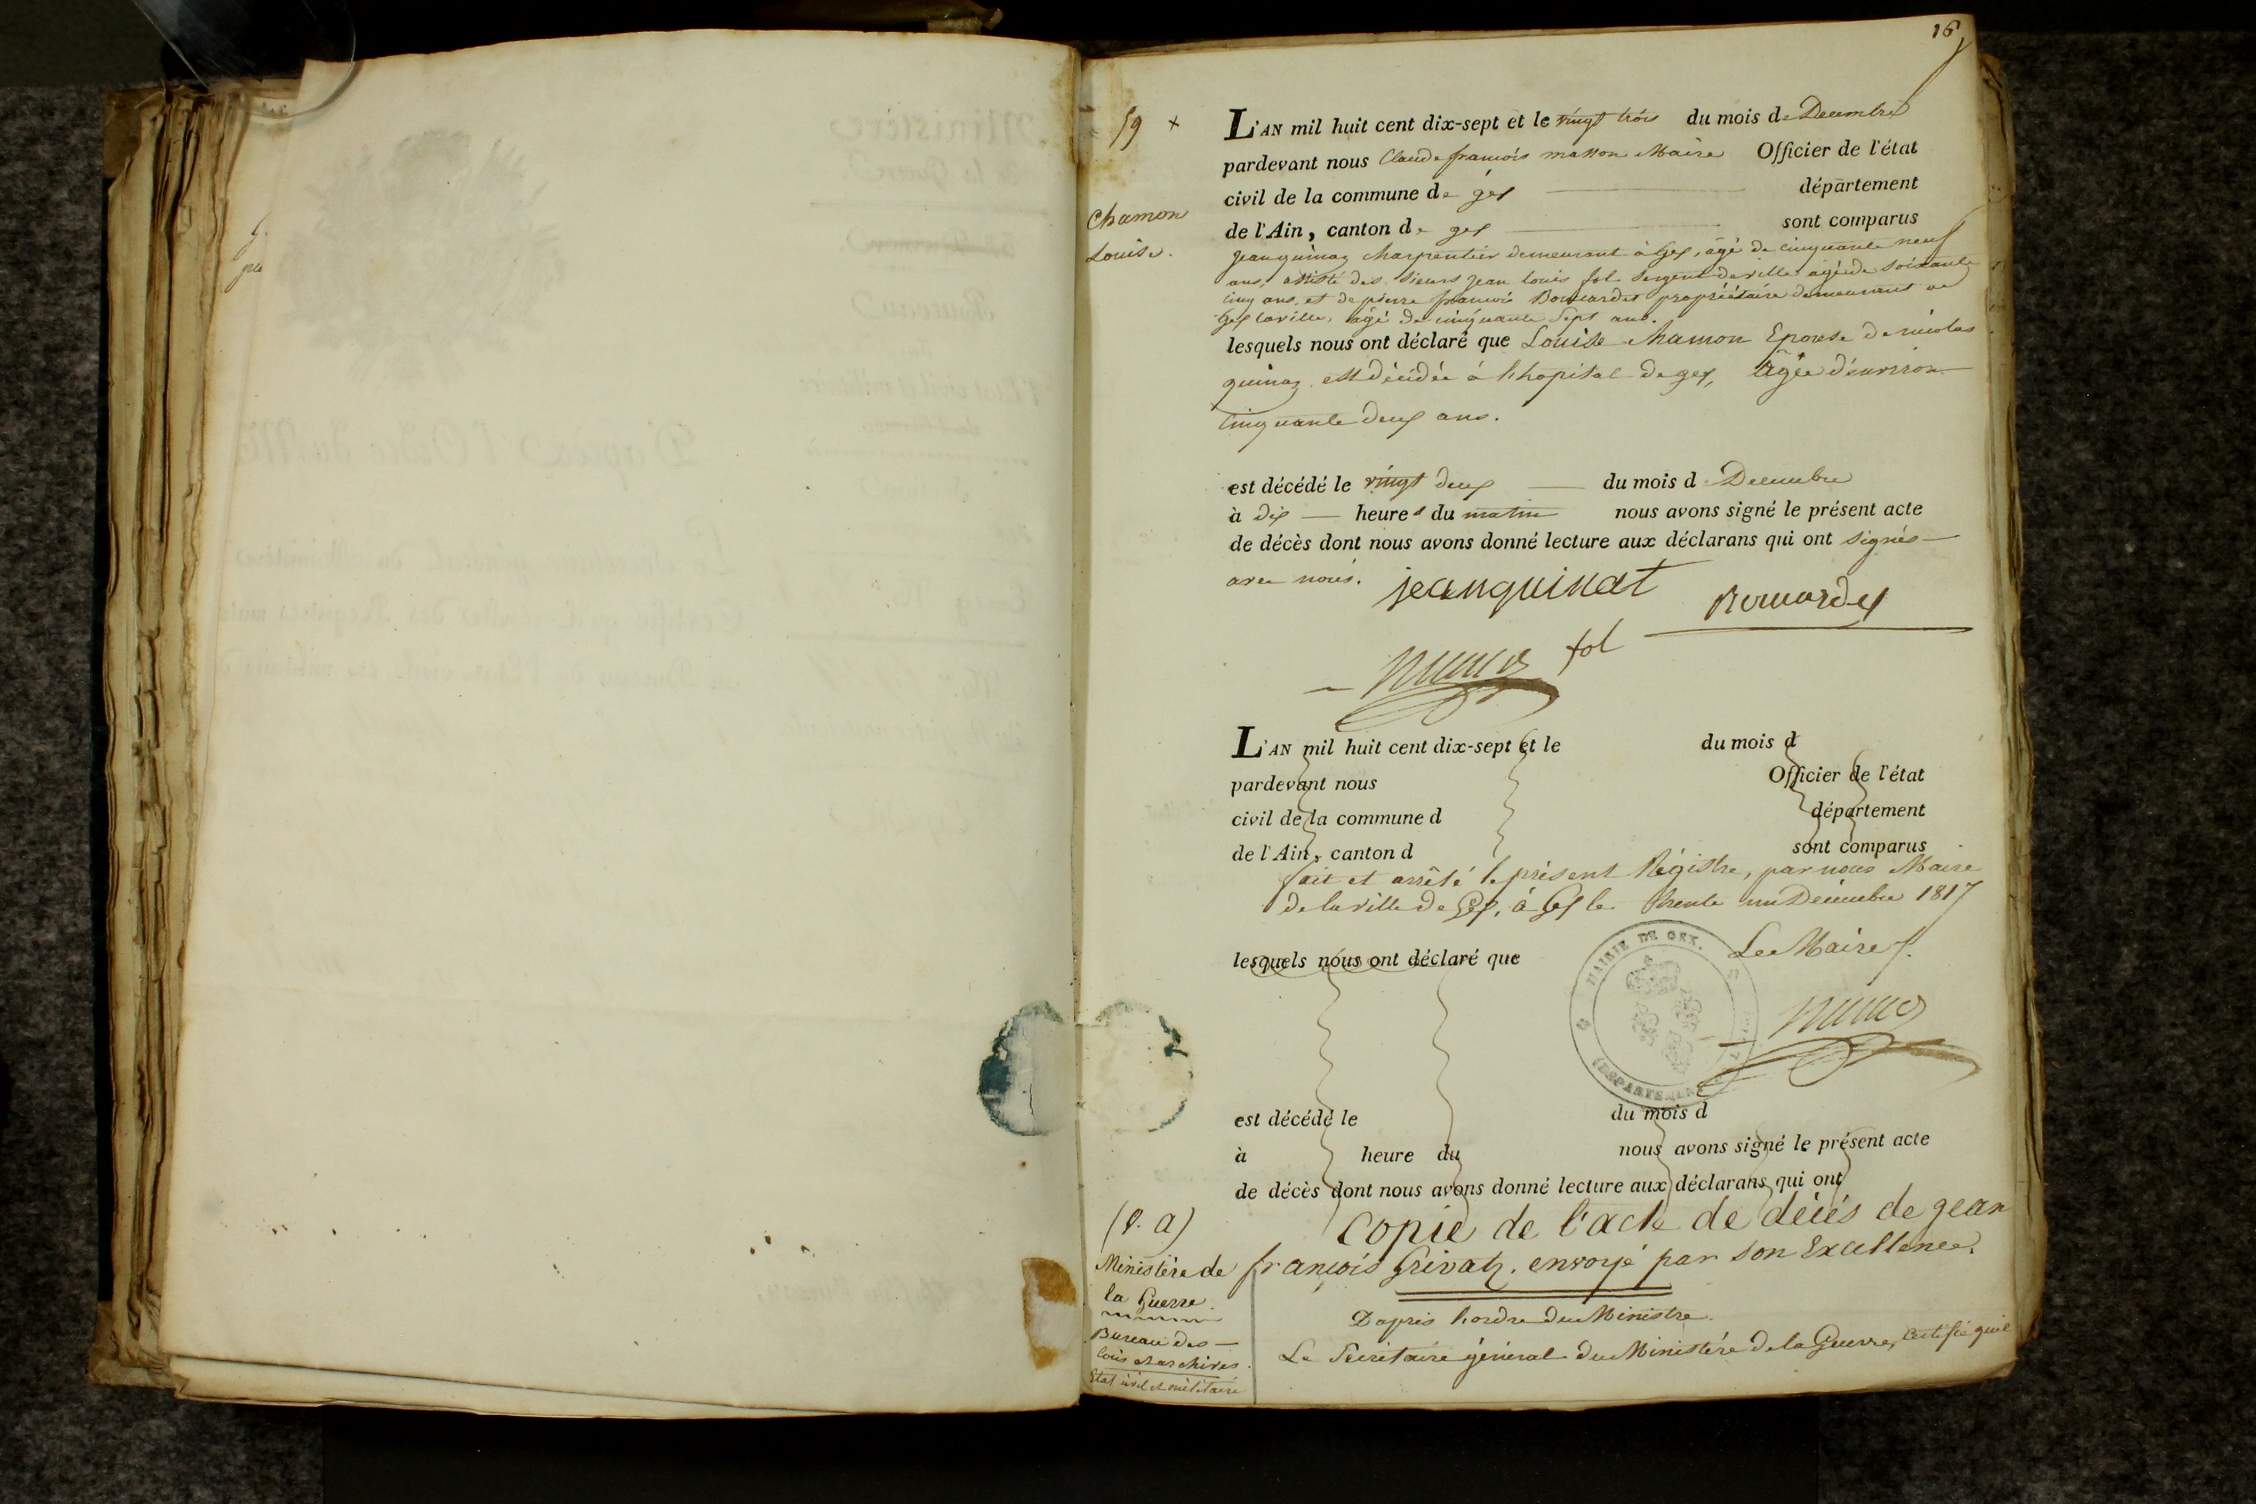 16
59 +
Chamon
Louise.
L'AN mil huit cent dix-sept et le vingt trois du mois de Decembre
pardevant nous Claude françois masson Maire Officier de l'état
civil de la commune de gex département
de l'Ain, canton de gex sont comparus
jean quinaz charpentier demeurant à Gex, âgé de cinquante neuf
ans, assisté des sieurs jean louis fol sergent de ville âgé de soixante
cinq ans, et de pierre françois propriétaire demeurant a
Gex la ville, âgé de cinquante sept ans.
lesquels nous ont déclaré que Louise chamon Epouse de nicolas
quinaz est décédée à l'hopital de gex, âgée d'environ
cinquante deux ans.
est décédé le vingt deux du mois d Decembre
à dix heures du matin nous avons signé le présent acte
de décès dont nous avons donné lecture aux déclarans qui ont signés
avec nous. jean quinat
fol
L'AN mil huit cent dix-sept et le du mois d
pardevant nous Officier de l'état
civil de la commune d département
de l'Ain, canton d sont comparus
fait et arrêté le présent Régistre, par nous Maire
de la ville de Gex, à Gex le trente un Décembre 1817
lesquels nous ont déclaré que Le Maire
MAIRIE DE GEX.
est décédé le du mois d
à heure du nous avons signé le présent acte
de décès dont nous avons donné lecture aux déclarans qui ont
Copie de l'acte de décés de jean
françois Grivatz. envoyé par son Excellence.
Ministère de
la Guerre.
Bureau des
lois et archives.
Etat civil et militaire
Dapres l'ordre du Ministre.
Le Secrétaire général du Ministére de la Guerre, Certifie quil